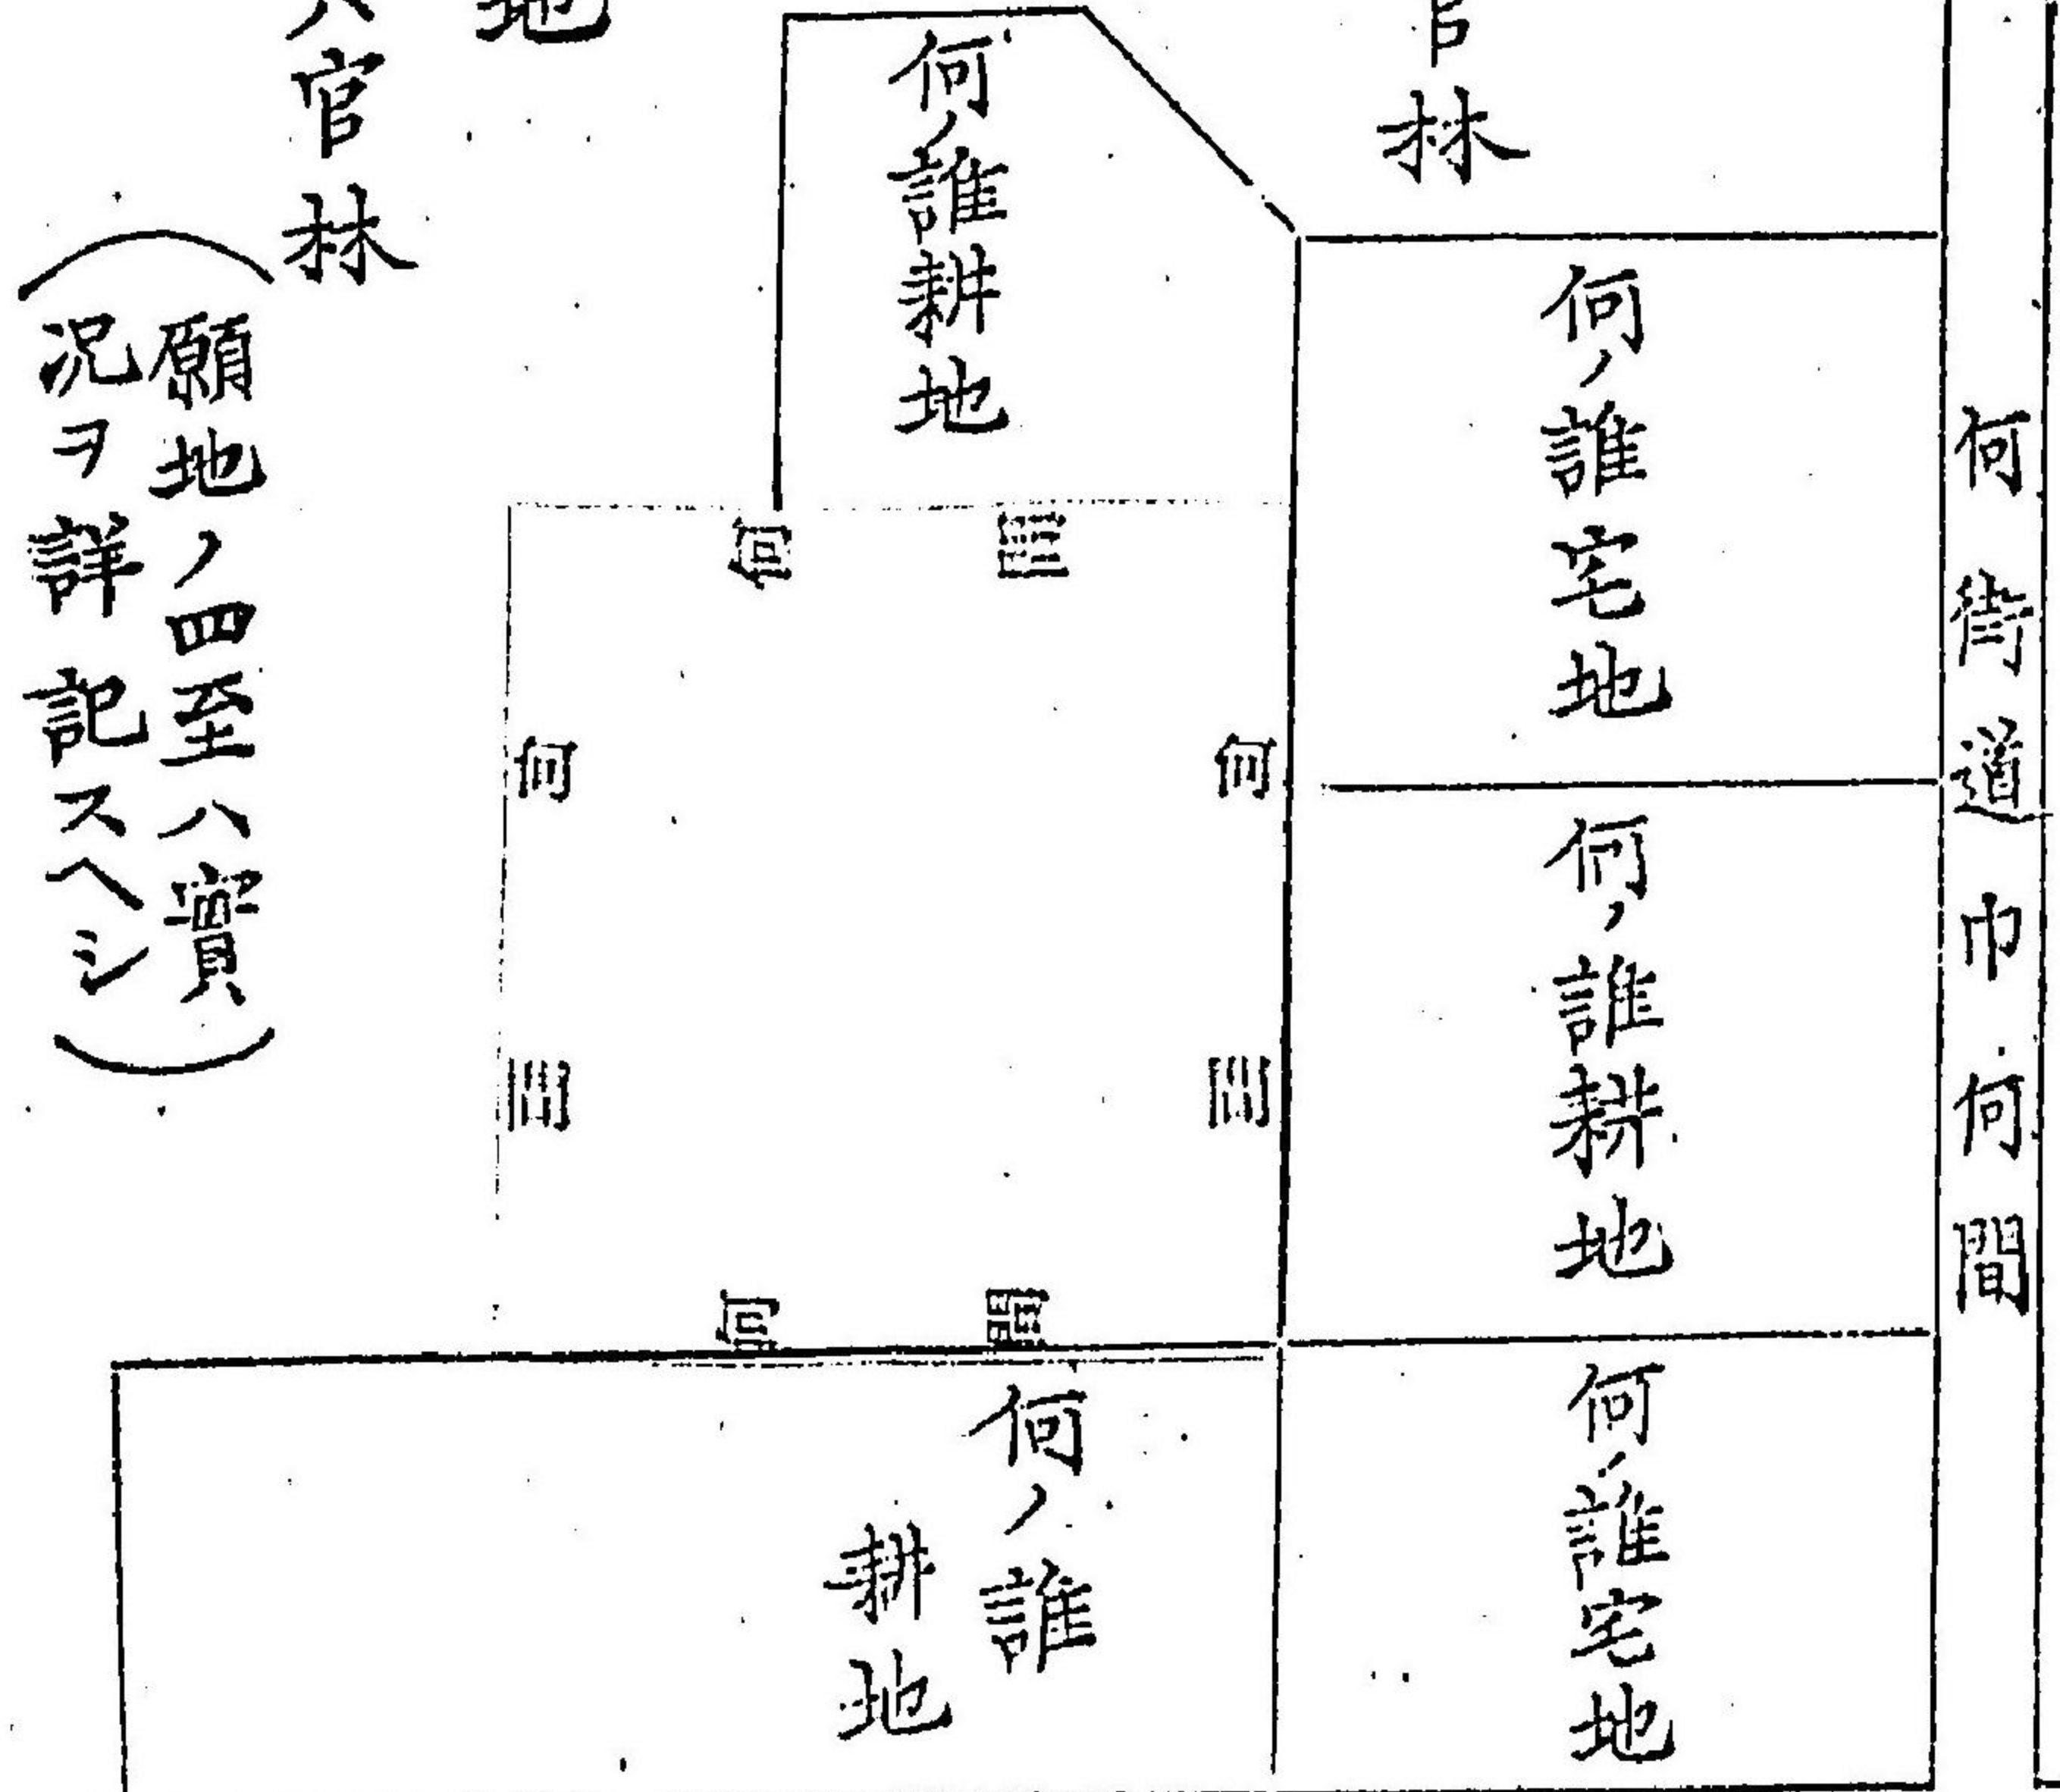 何街道巾何間
官林
何ノ誰宅地
何ノ誰耕地
何ノ誰宅地
何ノ誰耕地
何間
何間
何間
何間
何ノ誰
耕地
地
官林
願地ノ四至ハ實
況ヲ詳記スヘシ